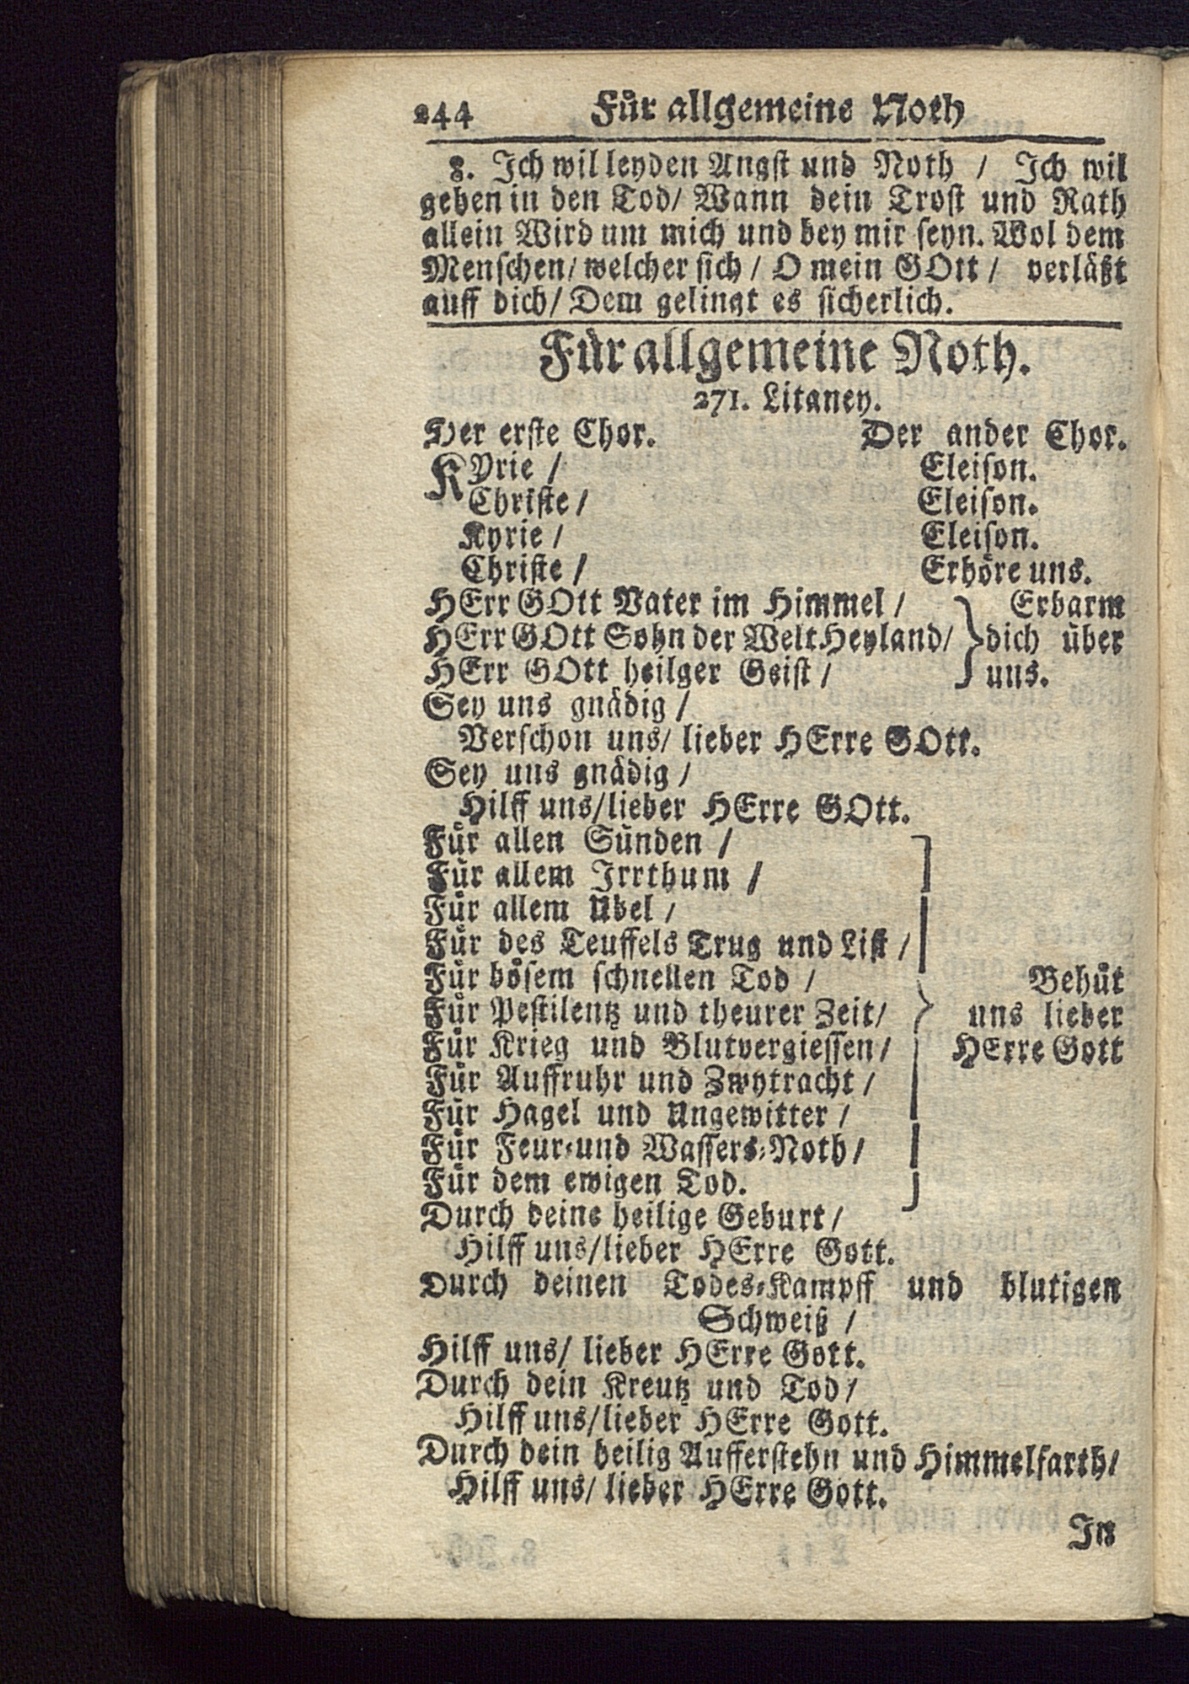 244 Für allgemeine Noth
8. Ich wil leyden Angst und Noth / Ich wil
geben in den Tod / Wann dein Trost und Rath
allein Wird um mich und bey mir seyn. Wol dem
Menschen / welcher sich / O mein GOtt / verläßt
auff dich / Dem gelingt es sicherlich.
Für allgemeine Noth.
271. Litaney.
Der erste Chor. Der ander Chor.
KYrie / Eleison.
Christe / Eleison.
Kyrie / Eleison.
Christe / Erhöre uns.
HErr GOtt Vater im Himmel / Erbarm
HErr GOtt Sohn der Welt Heyland / dich über
HErr GOtt heilger Geist / uns.
Sey uns gnädig /
Verschon uns / lieber HErre GOtt.
Sey uns gnädig /
Hilff uns / lieber HErre GOtt.
Für allen Sünden /
Für allem Irrthum /
Für allem Ubel /
Für des Teuffels Trug und List /
Für bösem schnellen Tod / Behüt
Für Pestilentz und theurer Zeit / uns lieber
Für Krieg und Blutvergiessen / HErre Gott
Für Auffruhr und Zwytracht /
Für Hagel und Ungewitter /
Für Feur-und Wassers-Noth /
Für dem ewigen Tod.
Durch deine heilige Geburt /
Hilff uns / lieber HErre Gott.
Durch deinen Todes-Kampff und blutigen
Schweiß /
Hilff uns / lieber HErre Gott.
Durch dein Kreutz und Tod /
Hilff uns / lieber HErre Gott.
Durch dein heilig Aufferstehn und Himmelfarth /
Hilff uns / lieber HErre Gott.
In